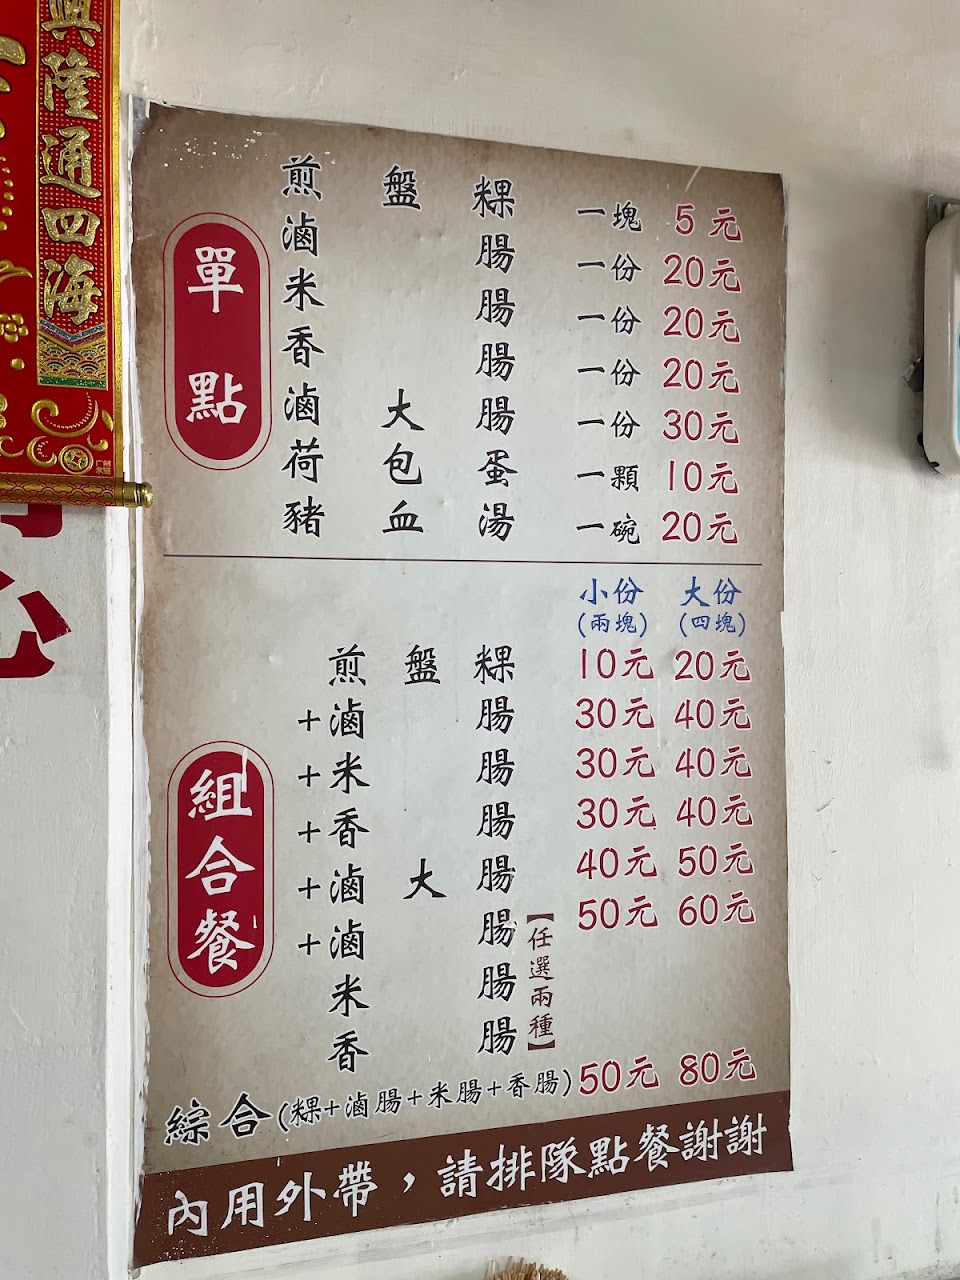 興隆通四海
單點
煎盤粿 一塊 5元
滷腸 一份 20元
米腸 一份 20元
香腸 一份 20元
滷大腸 一份 30元
荷包蛋 一顆 10元
豬血湯 一碗 20元
組合餐
小份 大份
(兩塊) (四塊)
煎盤粿 10元 20元
+滷腸 30元 40元
+米腸 30元 40元
+香腸 30元 40元
+滷大腸 40元 50元
+滷腸 50元 60元
米腸
香腸
【任選兩種】
綜合(粿+滷腸+米腸+香腸) 50元 80元
內用外帶，請排隊點餐謝謝